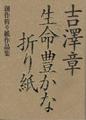 吉澤章
生命豊かな
折り紙
創作折り紙作品集